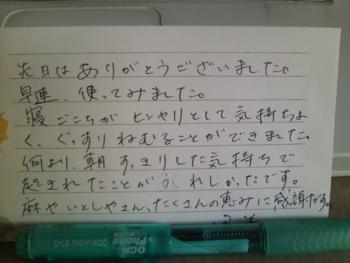 先日はありがとうございました。
早速、使ってみました。
寝ごこちがヒンヤリとして気持ちよ
く、ぐっすりねむることができました。
何より、朝すっきりした気持ちで
起きれたことがうれしかったです。
麻やいとしやさん、たくさんの恵みに感謝です。
OCN
Phone